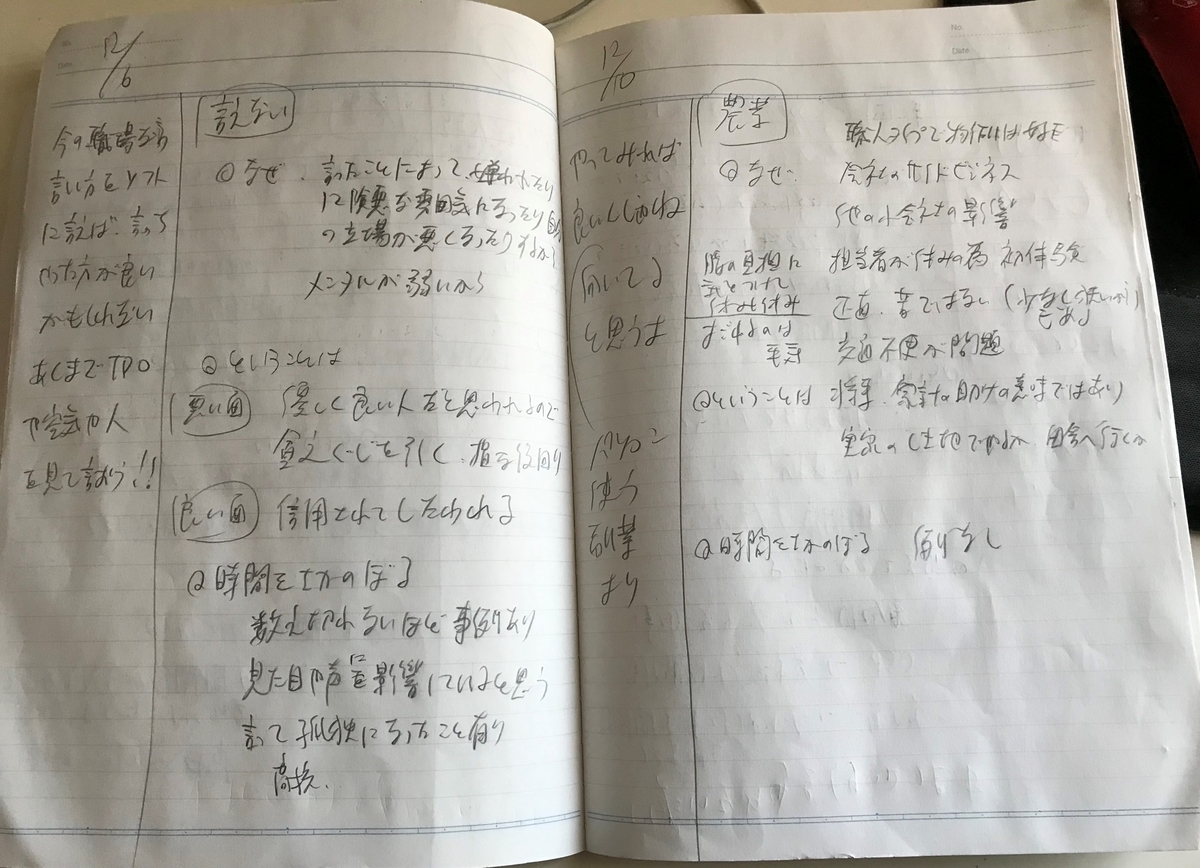 12/6
今の職場なら
言い方をソフト
に言えば、言っち
ゃった方が良い
かもしれない
あくまでTPO
や空気や人
を見て言おう!!
言えない
@なぜ、言ったことによって、嫌われたり
に険悪な雰囲気になったり自分
の立場が悪くなったりするから
メンタルが弱いから
@ということは
悪い面 優しく良い人だと思われるので
貧乏くじを引く、損な役回り
良い面 信用されてしたわれる
@時間をさかのぼる
数え切れないほど事例あり
見た目や声に影響していると思う
言って孤独になったこと有り
高校、
12/10
やってみれば
良いくしかね
向いてる
と思うは
パソコン
使う
副業
より
農業
職人タイプで物作りは好き
@なぜ、会社のサイドビジネス
他の小会社の影響
腰の負担に
気をつけて
休み休み
すだれのは
担当者が休みの為 初体験
正直、苦ではない(少なし洗いがら)
もあり
交通不便が問題
@ということは 将来、家計の助けの意味ではあり
実家の土地でやるか 田舎へ行くか
@時間をさかのぼる 例なし